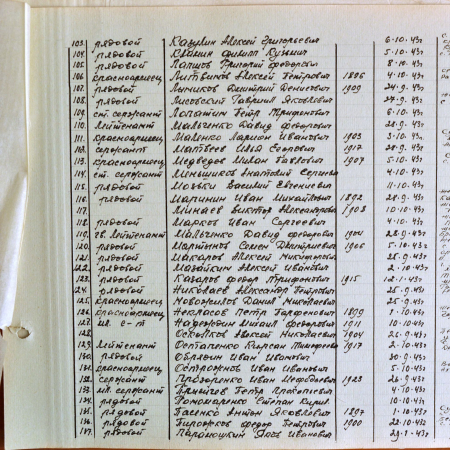 103. рядовой Казулин Алексей Григорьевич 6-10-43г
104. рядовой Филипп Кузьмич 5-10-43г
105. рядовой Лапшов Григорий Федорович 8-10-43г
106. красноармеец Литвинов Алексей Петрович 1896 4-10-43г
107. рядовой Дмитрий Денисович 1909 24-9-43г
108. рядовой Лисовский Гавриил Яковлевич 27-9-43г
109. ст. сержант Лопатин Петр Трифонович 6-10-43г
110. лейтенант Мальченко Давид Федорович 28-9-43г
111. красноармеец Маленко Ларион Иванович 1903 3-10-43г
112. сержант Матвеев Илья Егорович 1917 28-9-43г
113. красноармеец Медведев Милан Павлович 1907 5-10-43г
114. ст. сержант Меньшиков Анатолий 4-10-43г
115. рядовой Василий Евгеньевич 11-10-43г
116. рядовой Маринин Иван Михайлович 1892 28-9-43г
117. Минаев Виктор Александрович 1903 10-10-43г
118. рядовой Марков Иван Сергеевич 4-10-43г
119. гв. лейтенант Мальченко Давид Федорович 1904 28-9-43г
120. рядовой Мартынов Семен Дмитриевич 1906 5-10-43г
121. рядовой Макаров Алексей 25-9-43г
122. рядовой Мазайкин Алексей Иванович 2-10-43г
123. рядовой Казаров Федор Трифонович 1915 12-1-43г
124. рядовой Николаев Александр Петрович 25-9-43г
125. красноармеец Новожилов Данил Николаевич 25-9-43г
126. красноармеец Некрасов Петр Парфенович 1899 9-10-43г
127. мл. с-т Надеждин Михаил Федорович 1911 10-10-43г
128. Алексей Николаевич 1904 26-9-43г
129. лейтенант Остапенко 1917 2-10-43г
130. рядовой Иван Иванович 30-9-43г
131. красноармеец Иван Иванович 5-10-43г
132. сержант Прозоренко Иван Мефодьевич 1923 26-9-43г
133. мл. сержант Петр 4-10-43г
134. рядовой Пономаренко Степан 10-10-43г
135. рядовой Пасенко Антон Яковлевич 1897 1-10-43г
136. рядовой Федор Петрович 1900 22-10-43г
137. рядовой Иванович 29-1-43г